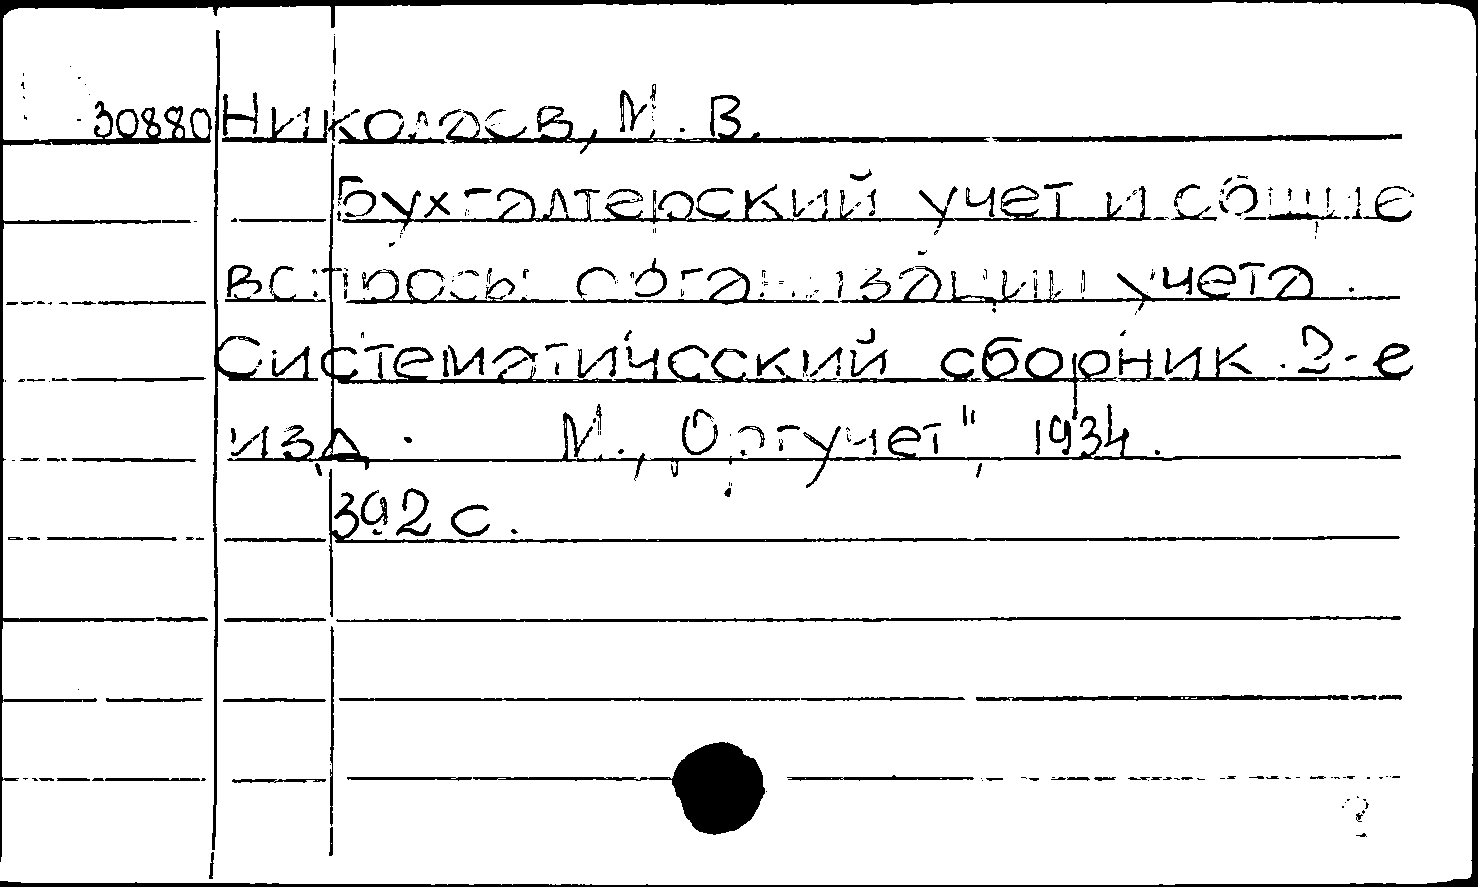 30880 Николаев, М. В.
Бухгалтерский учет и общие
вопросы организации учета.
Систематический сборник. 2-е
изд. М., „Оргучет", 1934.
392 с.
?